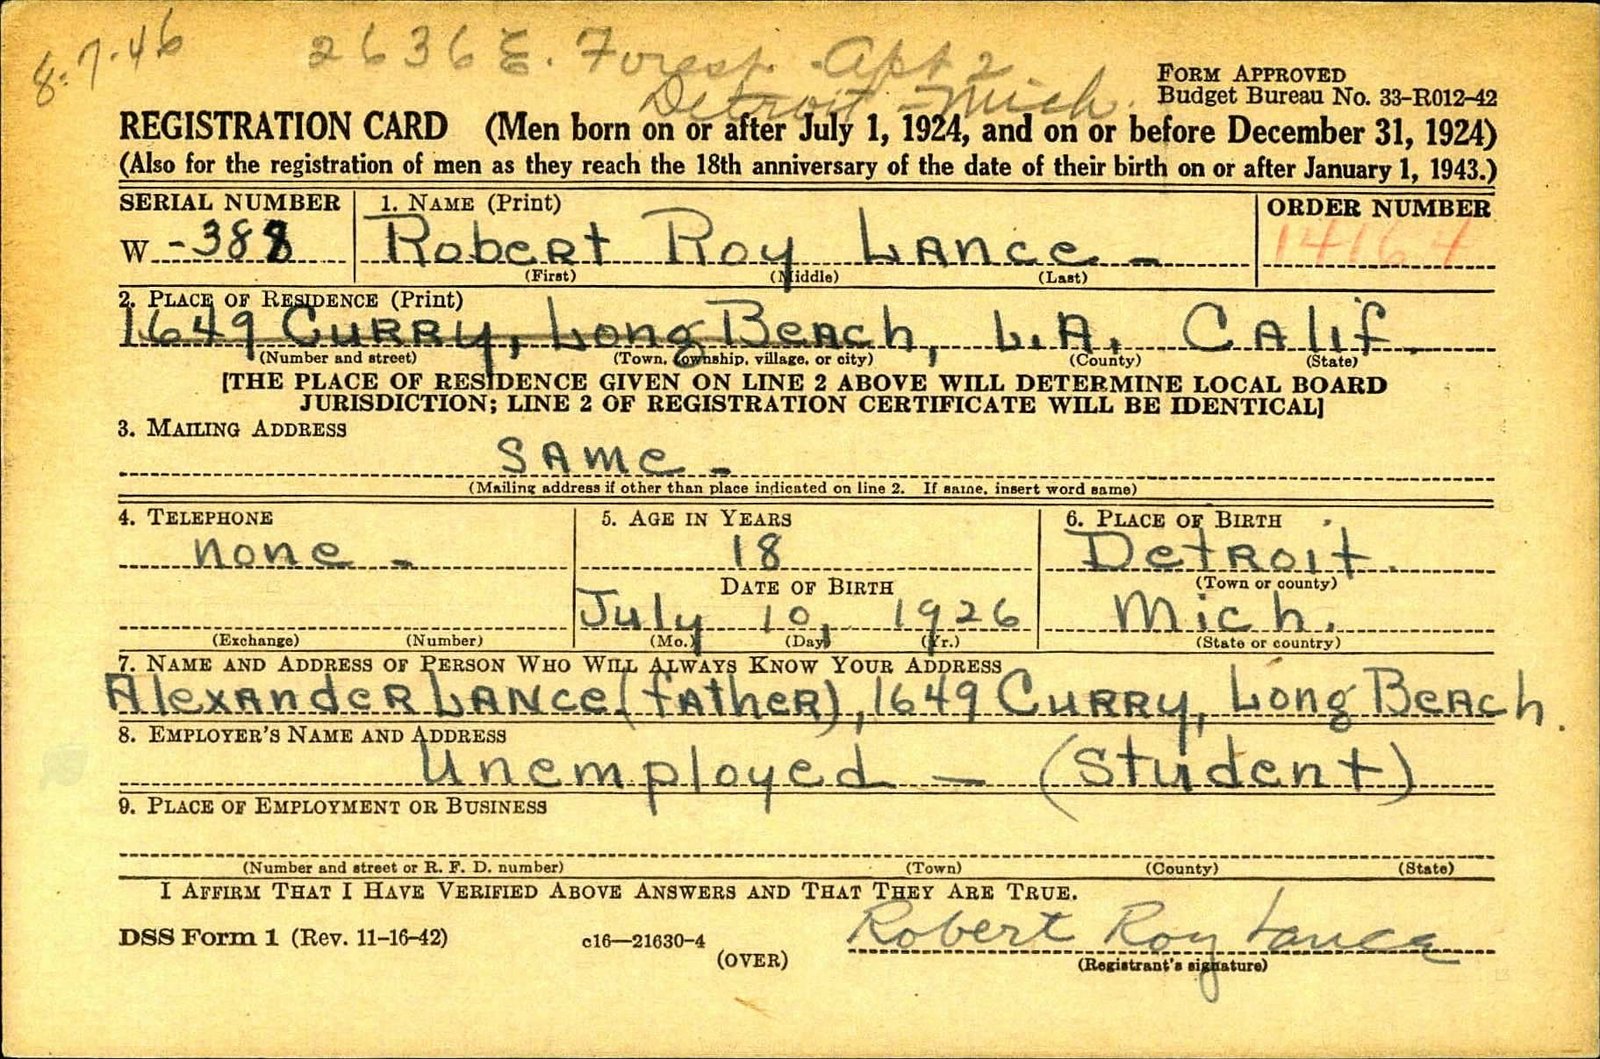 8-7-46 2636 E. Forest Apt 2
Detroit - Mich.
FORM APPROVED
Budget Bureau No. 33-R012-42
REGISTRATION CARD (Men born on or after July 1, 1924, and on or before December 31, 1924)
(Also for the registration of men as they reach the 18th anniversary of the date of their birth on or after January 1, 1943.)
SERIAL NUMBER 1. NAME (Print) ORDER NUMBER
W -388 Robert Roy Lance - 14164
(First) (Middle) (Last)
2. PLACE OF RESIDENCE (Print)
1649 Curry, Long Beach, L.A. Calif.
(Number and street) (Town, township, village, or city) (County) (State)
[THE PLACE OF RESIDENCE GIVEN ON LINE 2 ABOVE WILL DETERMINE LOCAL BOARD
JURISDICTION; LINE 2 OF REGISTRATION CERTIFICATE WILL BE IDENTICAL]
3. MAILING ADDRESS
Same -
(Mailing address if other than place indicated on line 2. If same, insert word same)
4. TELEPHONE 5. AGE IN YEARS 6. PLACE OF BIRTH
none - 18 Detroit.
DATE OF BIRTH (Town or county)
July 10, 1926 Mich.
(Exchange) (Number) (Mo.) (Day) (Yr.) (State or country)
7. NAME AND ADDRESS OF PERSON WHO WILL ALWAYS KNOW YOUR ADDRESS
Alexander Lance (father), 1649 Curry, Long Beach.
8. EMPLOYER'S NAME AND ADDRESS
Unemployed - (Student)
9. PLACE OF EMPLOYMENT OR BUSINESS
(Number and street or R. F. D. number) (Town) (County) (State)
I AFFIRM THAT I HAVE VERIFIED ABOVE ANSWERS AND THAT THEY ARE TRUE.
Robert Roy Lance
DSS Form 1 (Rev. 11-16-42) c16—21630-4
(OVER) (Registrant's signature)